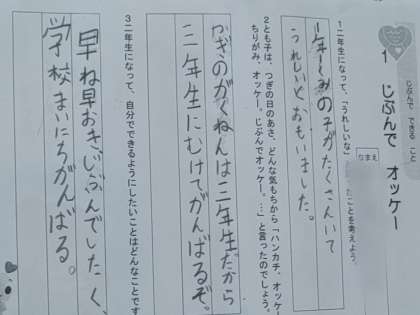 じぶんで できる こと
1 じぶんで オッケー
なまえ
たことを考えよう。
1 二年生になって、「うれしいな
1年1くみの子がたくさんいて
うれしいとおもいました。
2 とも子は、つぎの日のあさ、どんな気もちから「ハンカチ、オッケ
ちりがみ、オッケー。じぶんでオッケー。…」と言ったのでしょう。
かぎのがくねんは三年生だから
三年生にむけてがんばるぞ。
3 二年生になって、自分でできるようにしたいことはどんなことです
早ね早おき、じぶんでしたく、
学校まいにちがんばる。